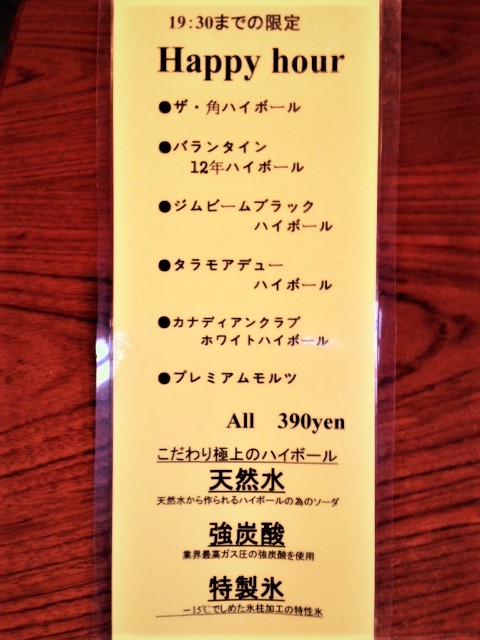 19:30までの限定
Happy hour
●ザ・角ハイボール
●バランタイン
12年ハイボール
●ジムビームブラック
ハイボール
●タラモアデュー
ハイボール
●カナディアンクラブ
ホワイトハイボール
●プレミアムモルツ
All 390yen
こだわり極上のハイボール
天然水
天然水から作られるハイボールの為のソーダ
強炭酸
業界最高ガス圧の強炭酸を使用
特製氷
－15℃でしめた氷柱加工の特性氷